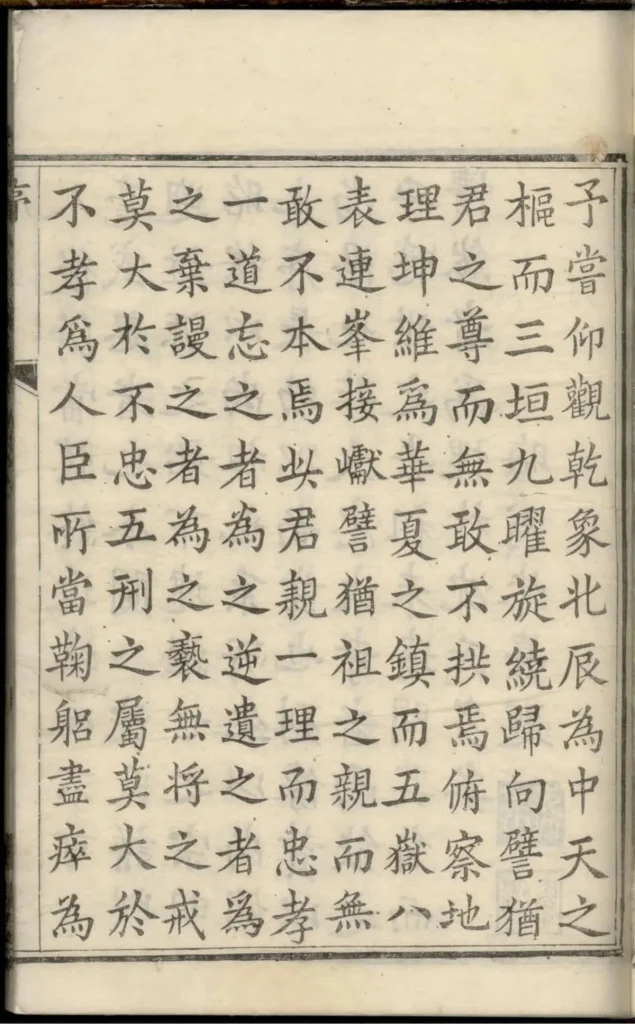 予嘗仰觀乾象北辰為中天之
樞而三垣九曜旋繞歸向譬猶
君之尊而無敢不拱焉俯察地
理坤維爲華夏之鎮而五嶽八
表連峯接巘譬猶祖之親而無
敢不本焉此君親一理而忠孝
一道忘之者為之逆遺之者爲
之棄謾之者為之褻無将之戒
莫大於不忠五刑之屬莫大於
不孝爲人臣所當鞠躳盡瘁為
序